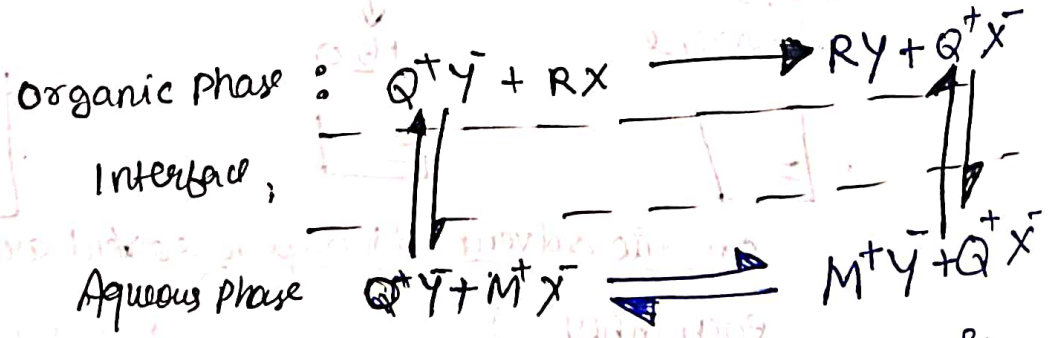 Organic Phase : Q⁺Y⁻ + RX ⟶ RY + Q⁺X⁻
Interface,
Aqueous Phase Q⁺Y⁻ + M⁺X⁻ ⇌ M⁺Y⁻ + Q⁺X⁻